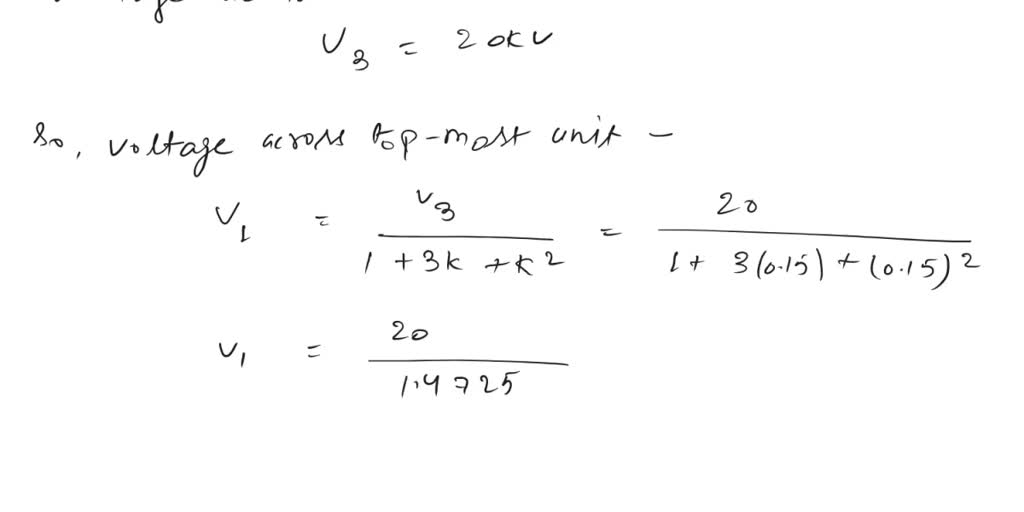 V3 = 20kV
So, voltage across top-most unit -
V1 = V3 / 1 + 3k + k2 = 20 / 1 + 3(0.15) + (0.15)2
V1 = 20 / 1.4725